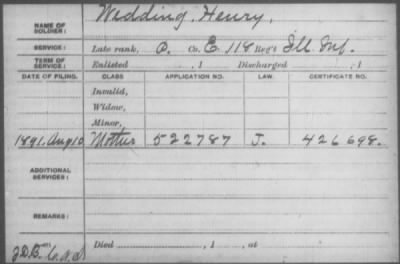 NAME OF SOLDIER: Wedding, Henry.
SERVICE: Late rank, P. Co. E, 118 Reg't Ill. Inf.
TERM OF SERVICE: Enlisted , 1 Discharged , 1
DATE OF FILING. CLASS. APPLICATION NO. LAW. CERTIFICATE NO.
Invalid,
Widow,
Minor,
1891. Aug 10 Mother 522787 J. 426698.
ADDITIONAL SERVICES:
REMARKS:
Died , 1 , at